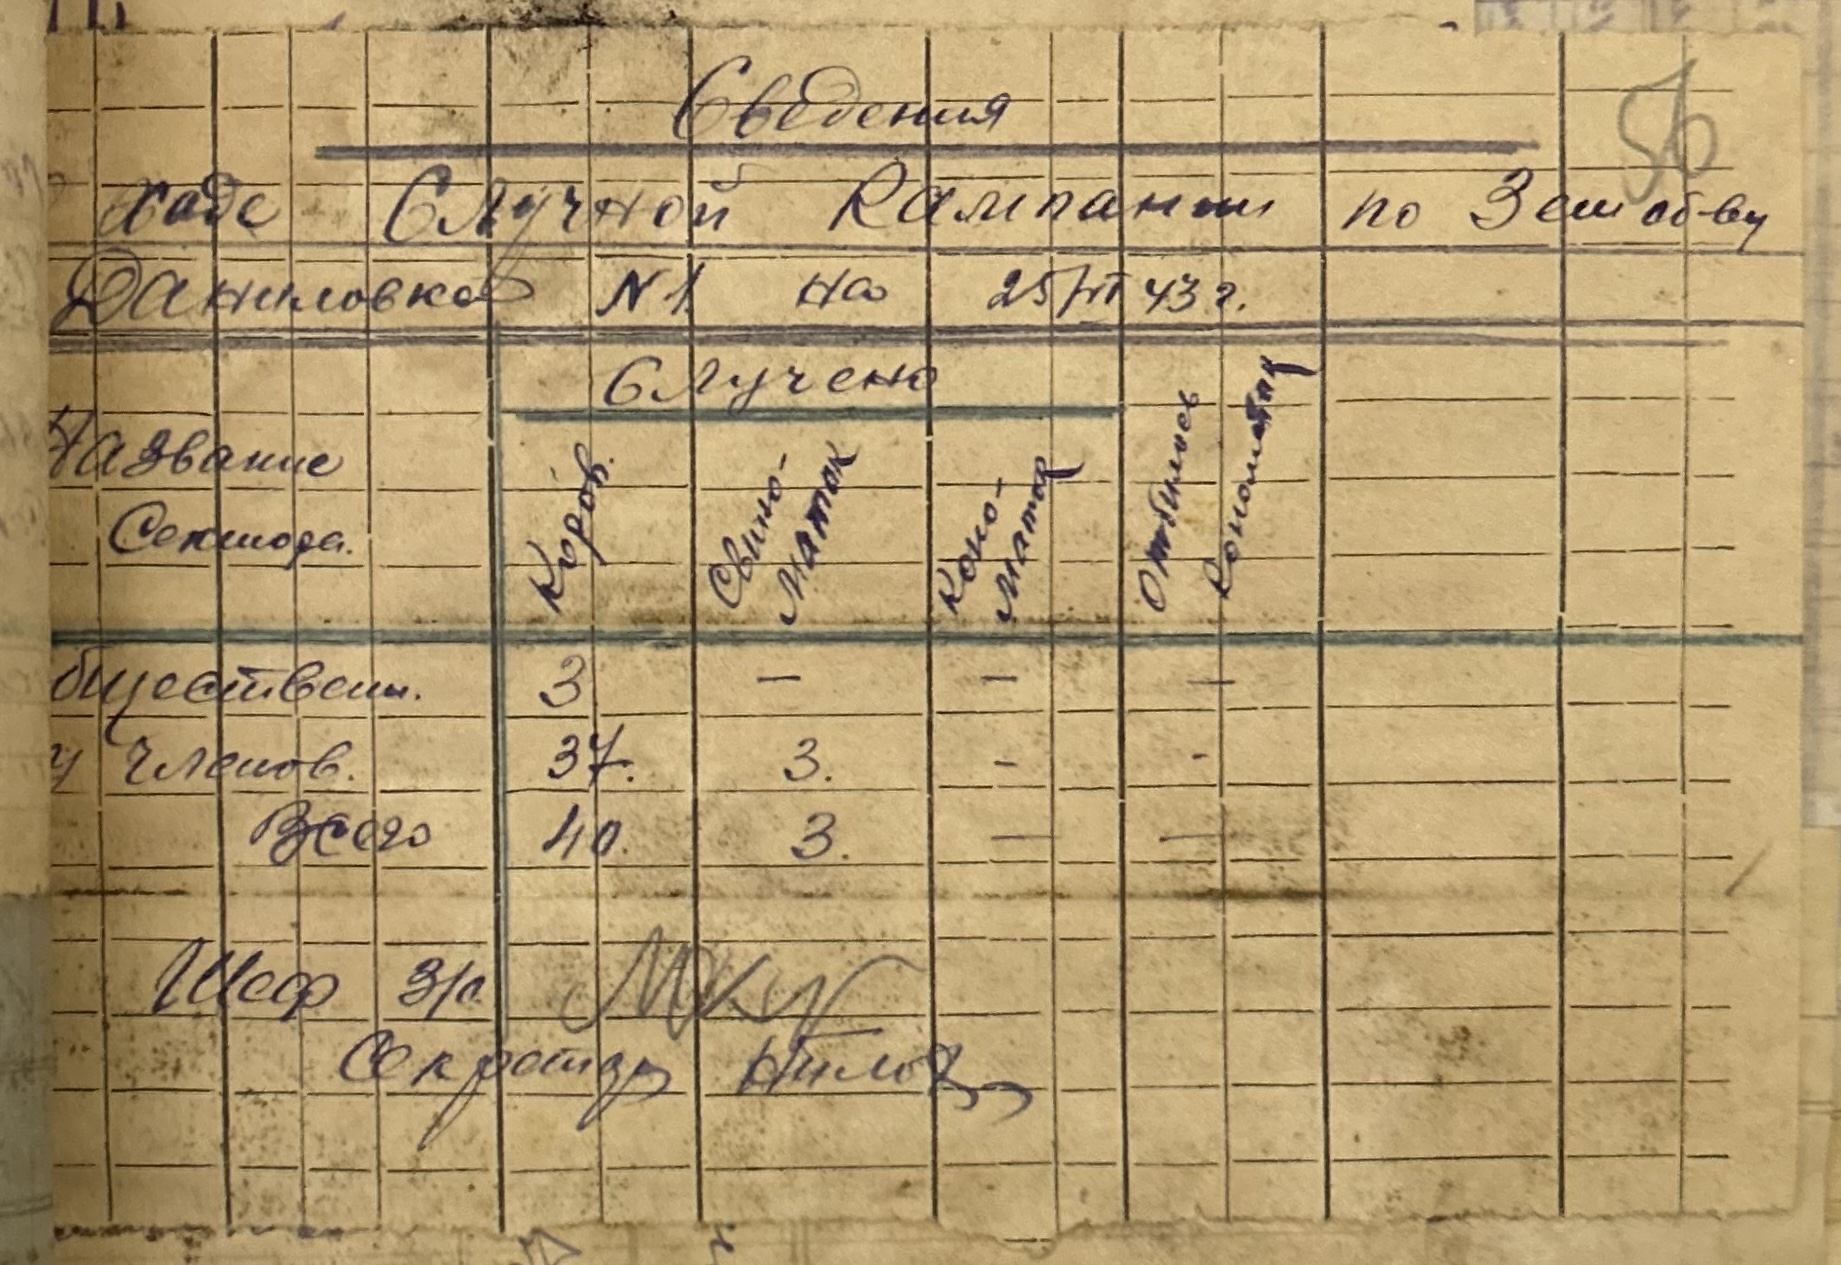 56
Сведения
ходе Случной Кампании по Земоб-ву
Даниловка N1 на 25/VI 43 г.
Случено
Название
Сектора.
Коров.
Свино-
маток
Коно-
маток
Ожеребилось
Кономаток
бществен. 3 — — —
у членов. 37. 3. - -
Всего 40. 3. — —
Шеф з/о
Секретарь